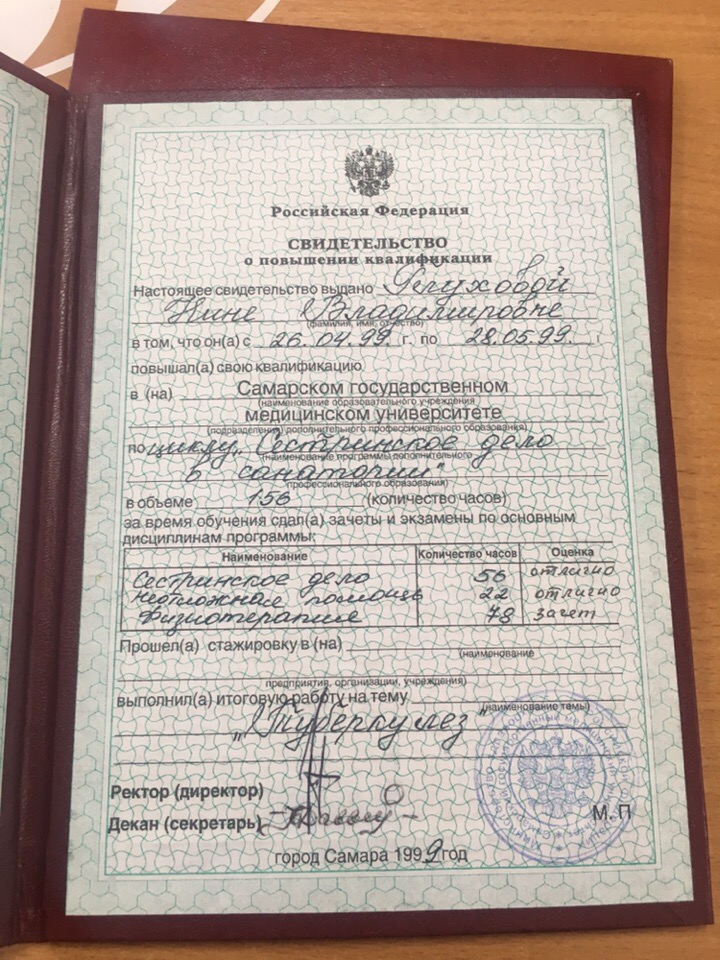 Российская Федерация
СВИДЕТЕЛЬСТВО
о повышении квалификации
Настоящее свидетельство выдано Репуховой
Нине Владимировне
(фамилия, имя, отчество)
в том, что он(а) с 26.04.99 г. по 28.05.99. г
повышал(а) свою квалификацию
в (на) Самарском государственном
(наименование образовательного учреждения
медицинском университете
(подразделения) дополнительного профессионального образования)
по циклу „Сестринское дело
(наименование программы дополнительного
в санатории"
профессионального образования)
в объеме 156 (количество часов)
за время обучения сдал(а) зачеты и экзамены по основным
дисциплинам программы:
Наименование Количество часов Оценка
Сестринское дело 56 отлично
неотложная помощь 22 отлично
Физиотерапия 78 зачет
Прошел(а) стажировку в (на)
(наименование
предприятия, организации, учреждения)
выполнил(а) итоговую работу на тему
(наименование темы)
„Туберкулез"
Ректор (директор)
Декан (секретарь)
М. П
город Самара 1999 год